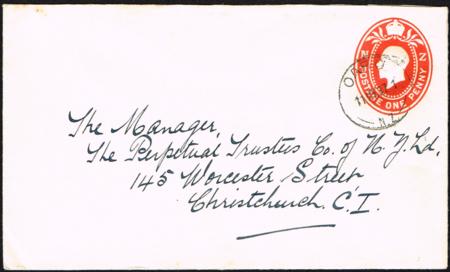 N Z POSTAGE ONE PENNY
N.Z
The Manager,
The Perpetual Trustees Co. of N.Z. Ld,
145 Worcester Street
Christchurch. C.I.